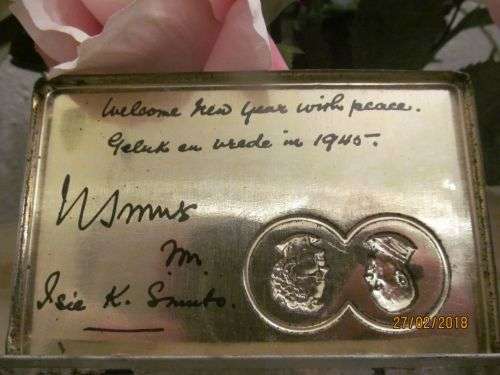 Welcome New Year with peace.
Geluk en vrede in 1945.
JSmuts
m.
Isie K. Smuts.
27/02/2018